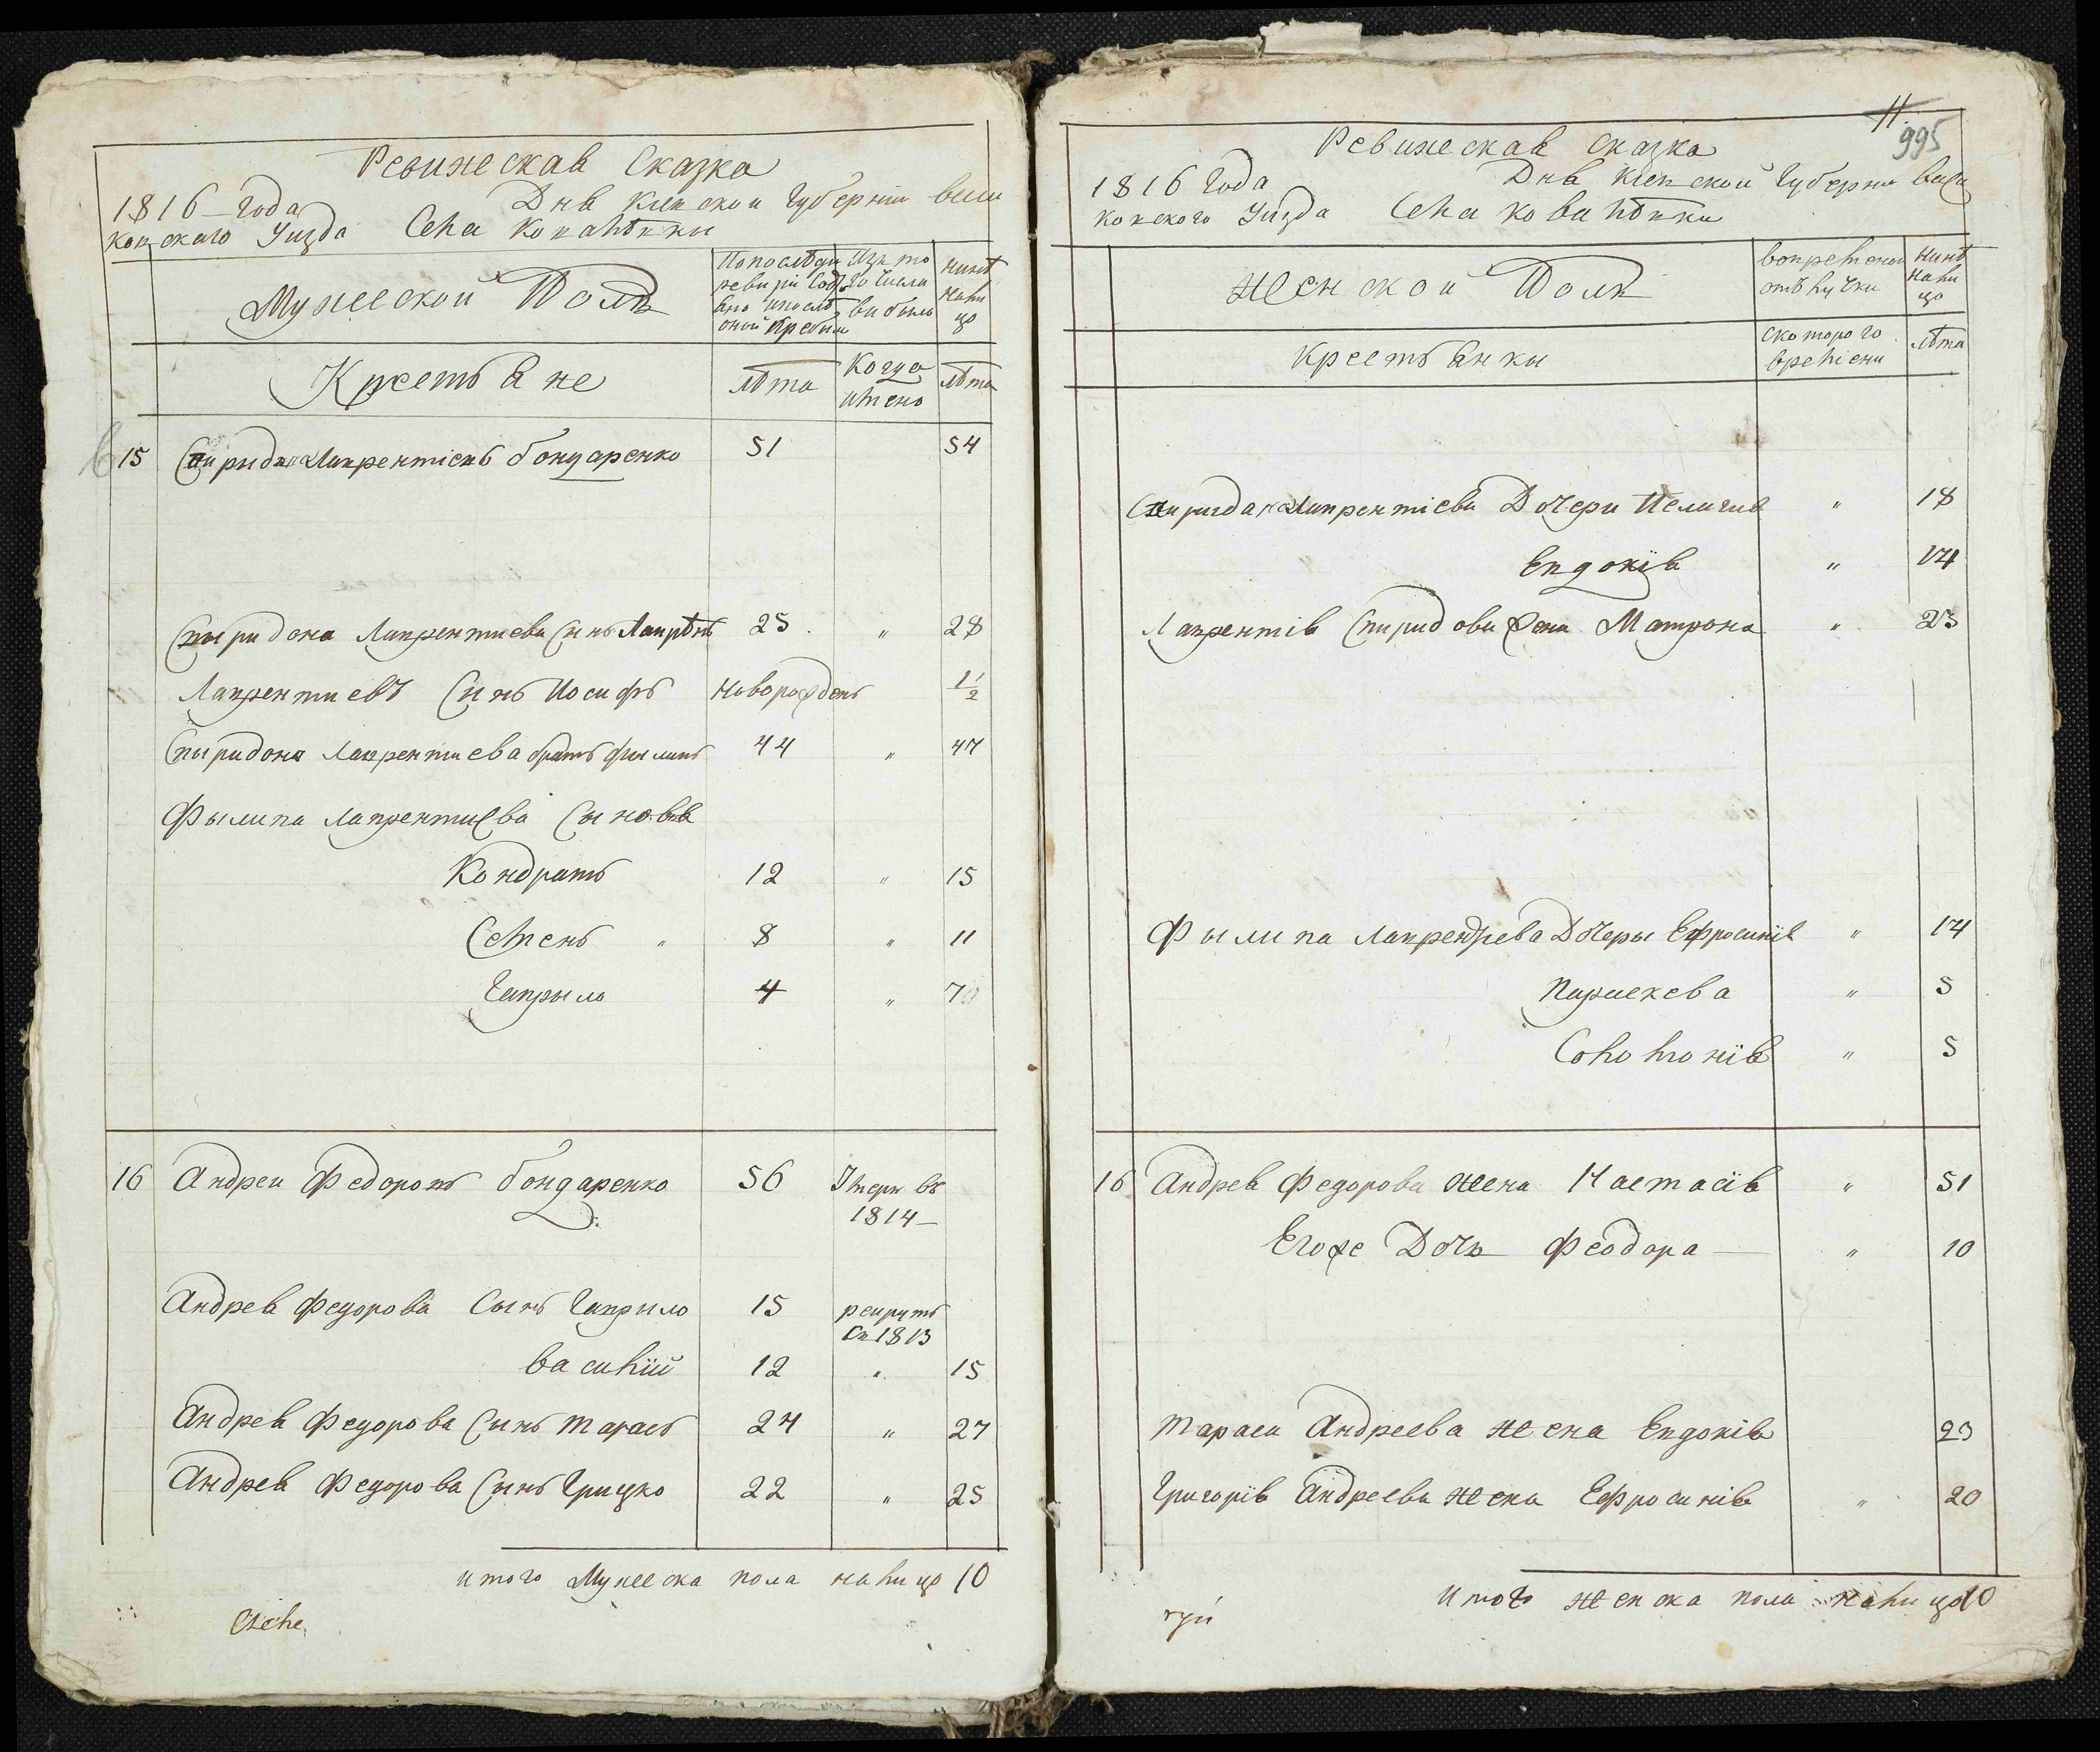 Ревижеская Сказка
1816 года Дня Киевской Губернии Васи
ковскаго Уизда Села Ковалѣвки
Мужеской Полъ
По последней ревизии состояло и после оной прибыло
Изъ того числа выбыло
нинѣ налицо
Крестьяне
лѣта
Когда имено
лѣта
15 Спиридон Лаврентіевъ бондаренко 51 54
Спыридона Лаврентиева Синъ Лаврѣнъ 25 " 28
Лаврентиевъ Синъ Иосифъ новорожденъ 1 1/2
Спыридона Лаврентиева братъ Фылипъ 44 " 47
Фылипа Лаврентиева Сыновя
Кондратъ 12 " 15
Семенъ " 8 " 11
Гаврыло 4 " 7
16 Андрей Федоровъ бондаренко 56 Умеръ въ
1814
Андрея Федорова Сынъ Гаврыло 15 рекрутъ
въ 1813
василій 12 " 15
Андрея Федорова Сынъ Тарасъ 24 " 27
Андрея Федорова Сынъ Грицко 22 " 25
итого Мужеска пола налицо 10
11.
995
Ревижеская Сказка
1816 Года Дня Киевской Губерни васи
ковского Уизда Села Ковалѣвки
Женской Полъ
вовременой отлучки
нинѣ налицо
Крестьянки
Скоторого времени
лѣта
Спиридона Лаврентіева Дочери Пелагия " 18
Евдокія " 14
Лаврентія Спиридова жена Матрона " 23
Фылипа Лаврентиева Дочеры Ефросинія " 14
Параскева " 5
Соломонія " 5
16 Андрея Федорова жена Настасія " 51
Егоже Дочь Феодора " 10
Тараса Андреева жена Евдокія 23
Григорія Андреева жена Ефросинія " 20
Итого женска пола налицо 10